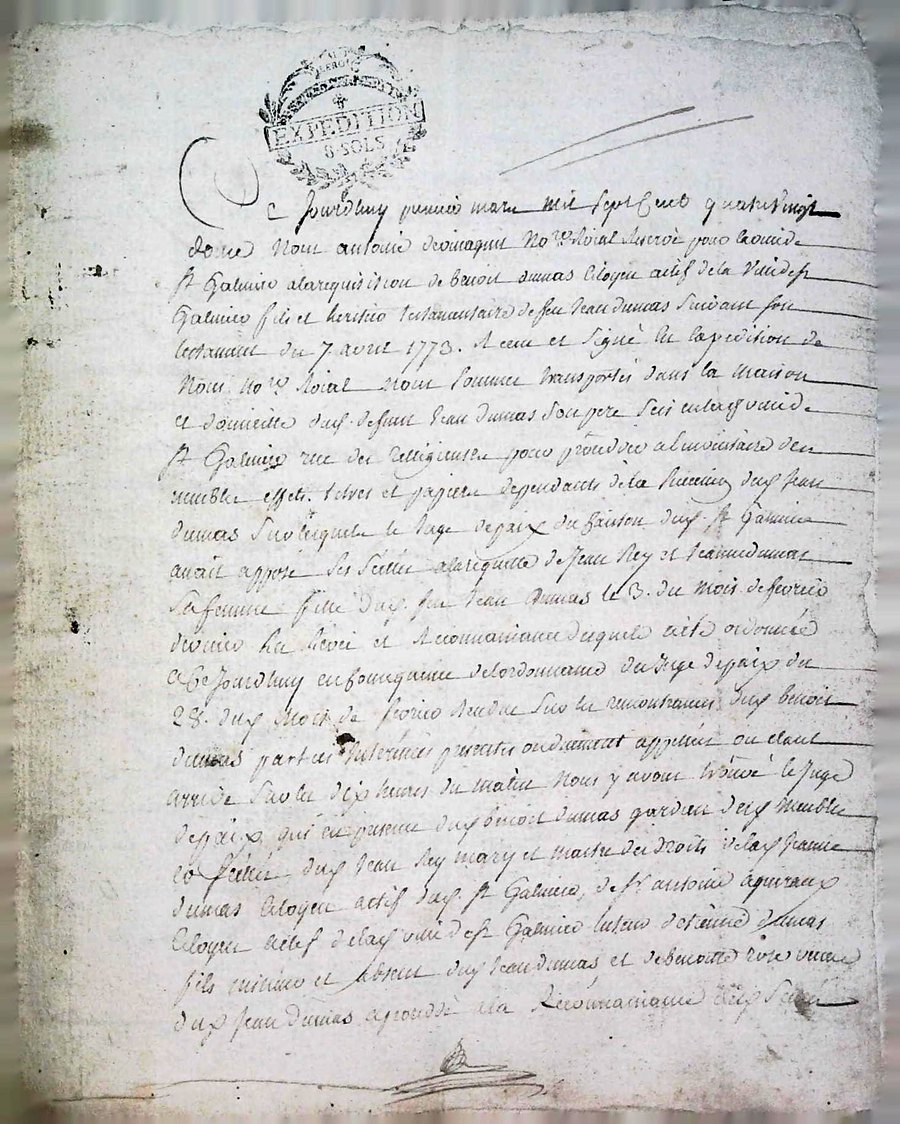 EXPEDITION
8 SOLS
Ce Jourdhuy premier mars mil sept Cent quatrevingt
douze Nous antoine No.re Roial Reservé pour la ville de
St Galmier alarequisition de benoit dumas Citoyen actif de la Ville de St
Galmier fils et heritier testamentaire de feu Jean dumas Suivant son
testament du 7 avril 1773. Recu et Signé En Expedition de
Nous No.re Roial nous sommes transportés dans la maison
et domicille dud. defunt Jean dumas son pere Sis en lad ville de
St Galmier rue des Religieuses pour proceder a linventaire des
meubles effets. titres et papiers dependants de la Succession dud Jean
dumas Sur lesquels le Juge depaix du Canton dud. St Galmier
avait apposé Ses Scellés alarequette de Jean Rey et Jeanne dumas
Sa femme fille dud. feu Jean dumas le 3. du mois de fevrier
dernier La levée et Reconnaissance desquels a été ordonnée
a Ce Jourdhuy en Consequence de lordonnance du Juge depaix du
28. dud mois de fevrier Rendue Sur les remontrances dud benoit
dumas parties Interessées presentes ou duement appellées ou etant
arrivé Sur les dix heures du matin Nous y avons trouvé le Juge
depaix, qui en presence dud benoit dumas gardien desd meubles
et Scellés dud Jean Rey mary et maitre des droits delad Jeanne
dumas Citoyen actif dud. St Galmier, de Sr antoine
Citoyen actif delad ville de St Galmier tuteur detienne dumas
fils mineur et absent dud Jean dumas et debenoitte veuve
dud Jean dumas a procedé a la Reconnaissance desd Scellés